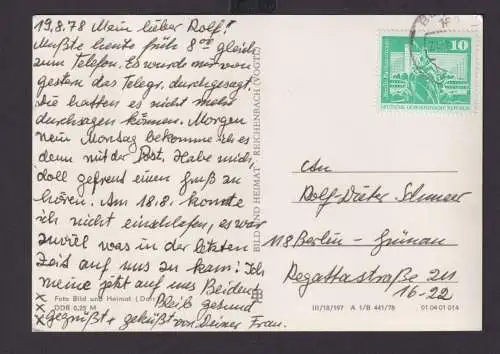 19.8.78 Mein lieber Rolf!
Mußte heute früh 8⁰⁰ gleich
zum Telefon. Es wurde mir von
gestern das Telegr. durchgesagt.
Sie hatten es nicht mehr
durchsagen können. Morgen
nein Montag bekomme ich es
denn mit der Post. Habe mich
doll gefreut einen Gruß zu
hören. Am 18.8. konnte
ich nicht einschlafen, es war
zuviel was in der letzten
Zeit auf uns zu kam! Ich
meine jetzt auf uns Beiden.
Bleib gesund
gegrüßt + geküßt von Deiner Frau.
Foto Bild und Heimat
DDR 0,25 M
BILD UND HEIMAT REICHENBACH (VOGTL)
10
DEUTSCHE DEMOKRATISCHE REPUBLIK
An
Rolf-Dieter
118 Berlin-Grünau
Regattastraße 211
16-22
III/18/197 A 1/B 441/78 01 04 01 014